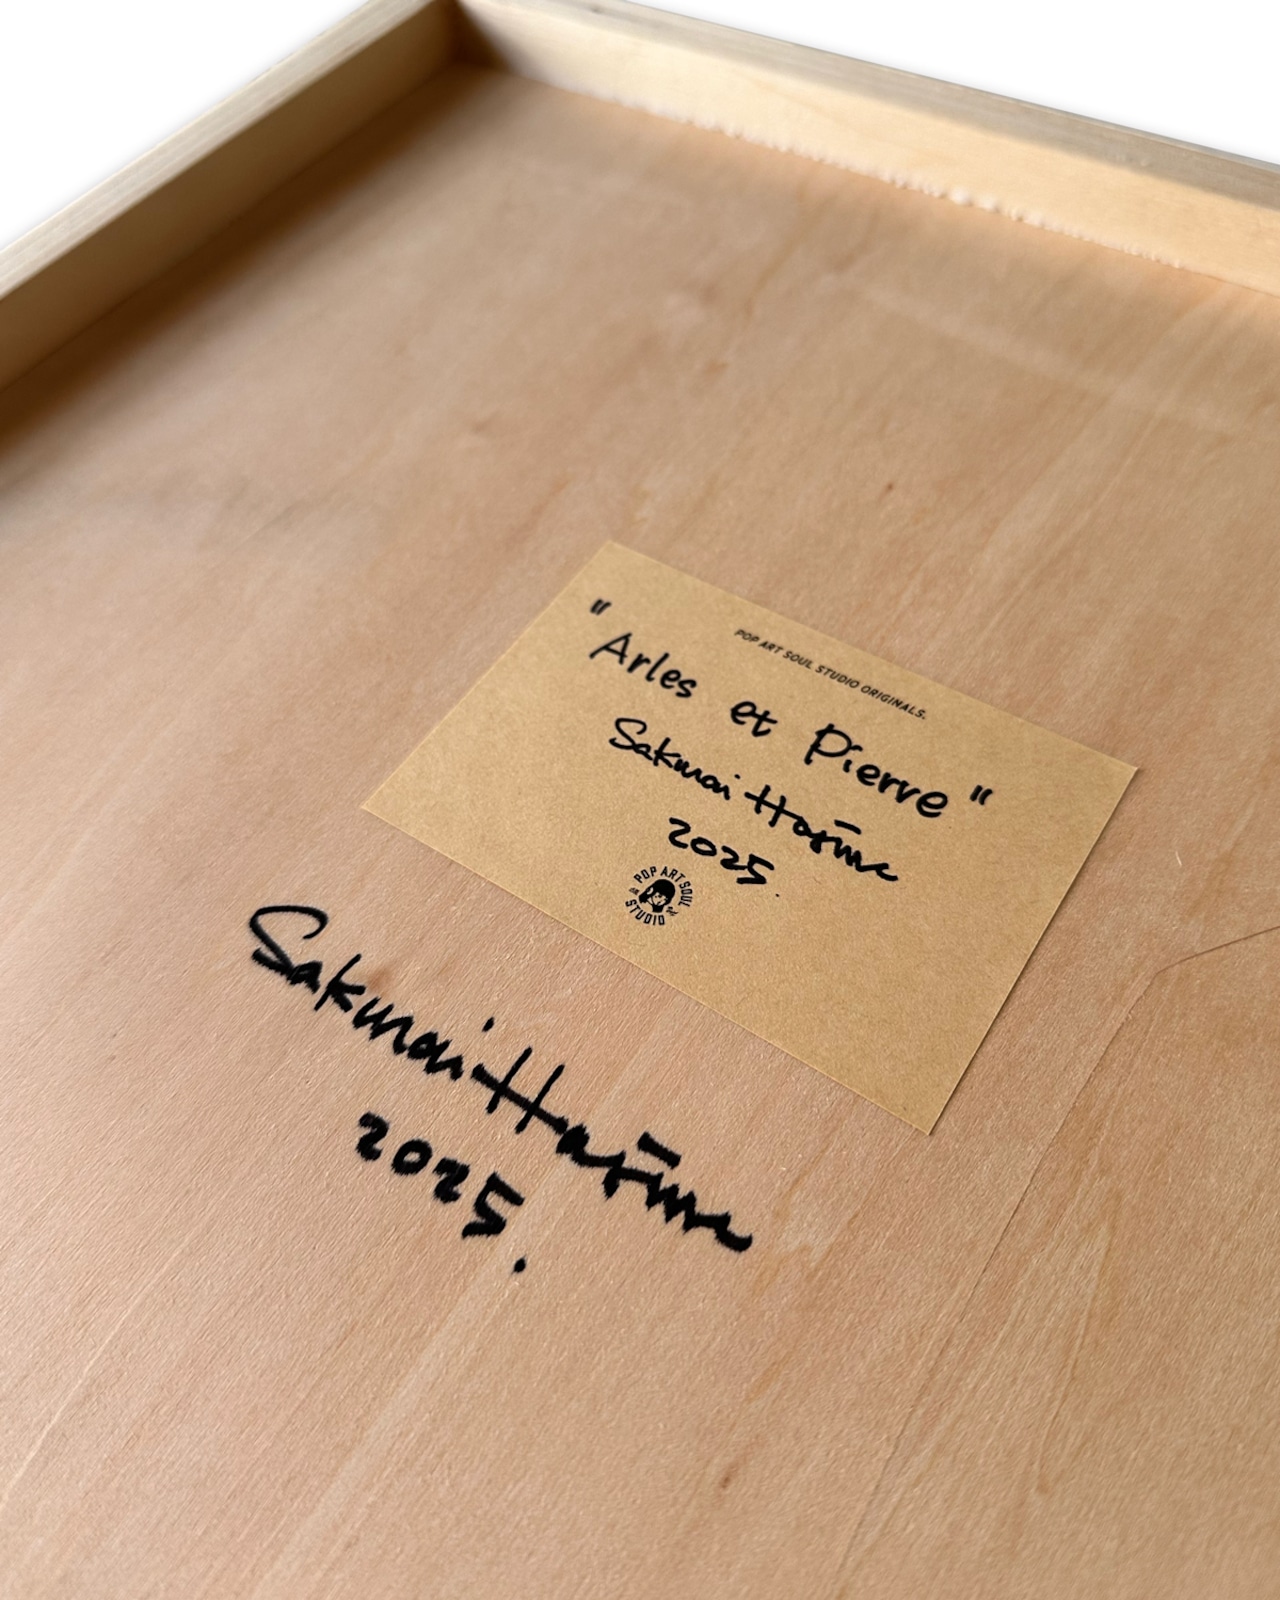 POP ART SOUL STUDIO ORIGINALS.
"Arles et Pierre"
Sakurai Hajime
2025.
POP ART SOUL
STUDIO
Sakurai Hajime
2025.